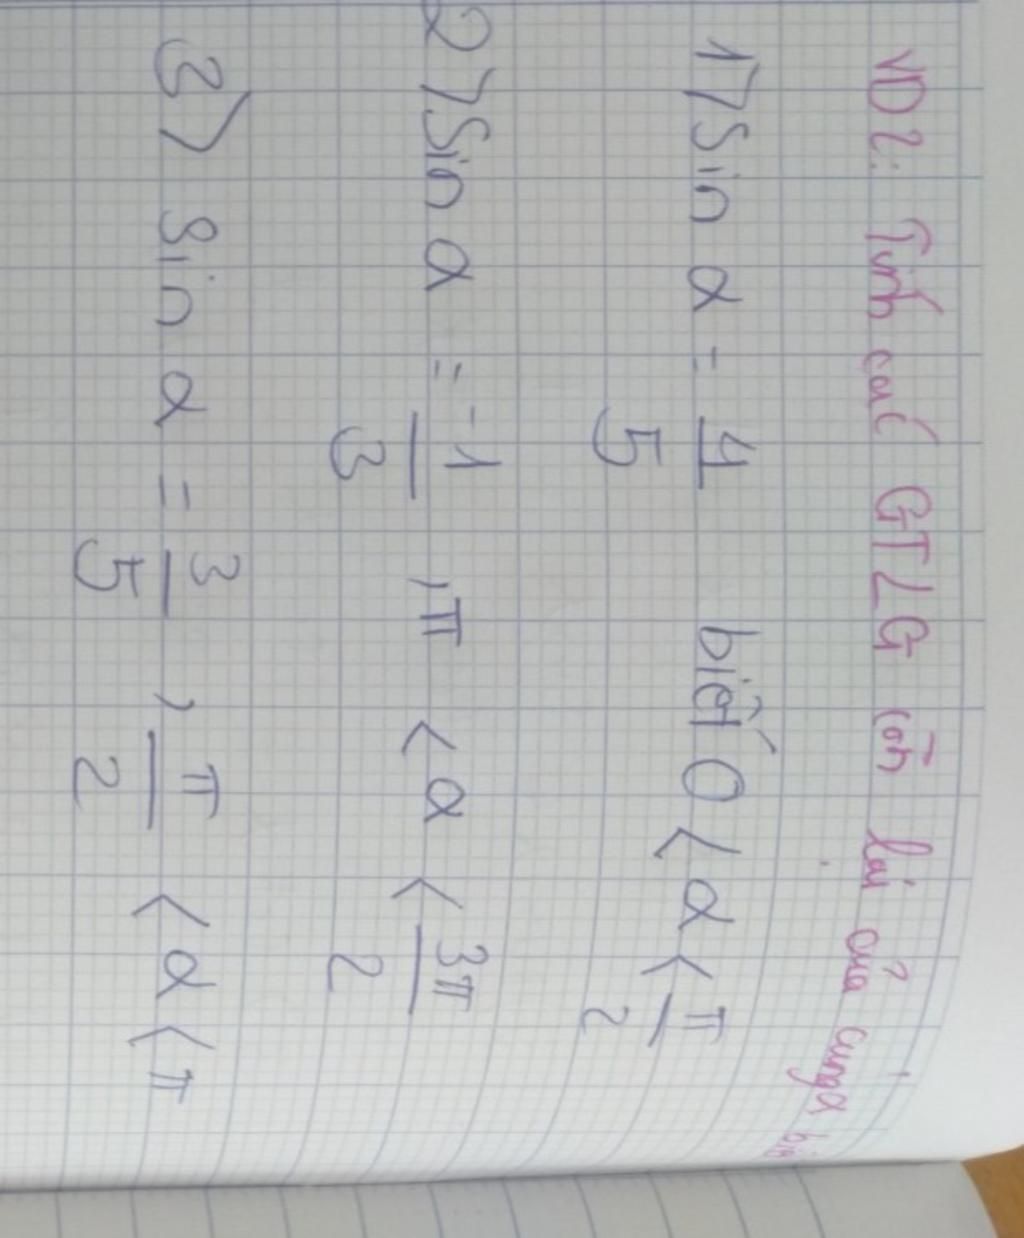 VD2: Tính các GTLG còn lại của cung α
1) Sin α = 4/5 biết 0 < α < π/2
2) Sin α = -1/3, π < α < 3π/2
3) Sin α = 3/5, π/2 < α < π